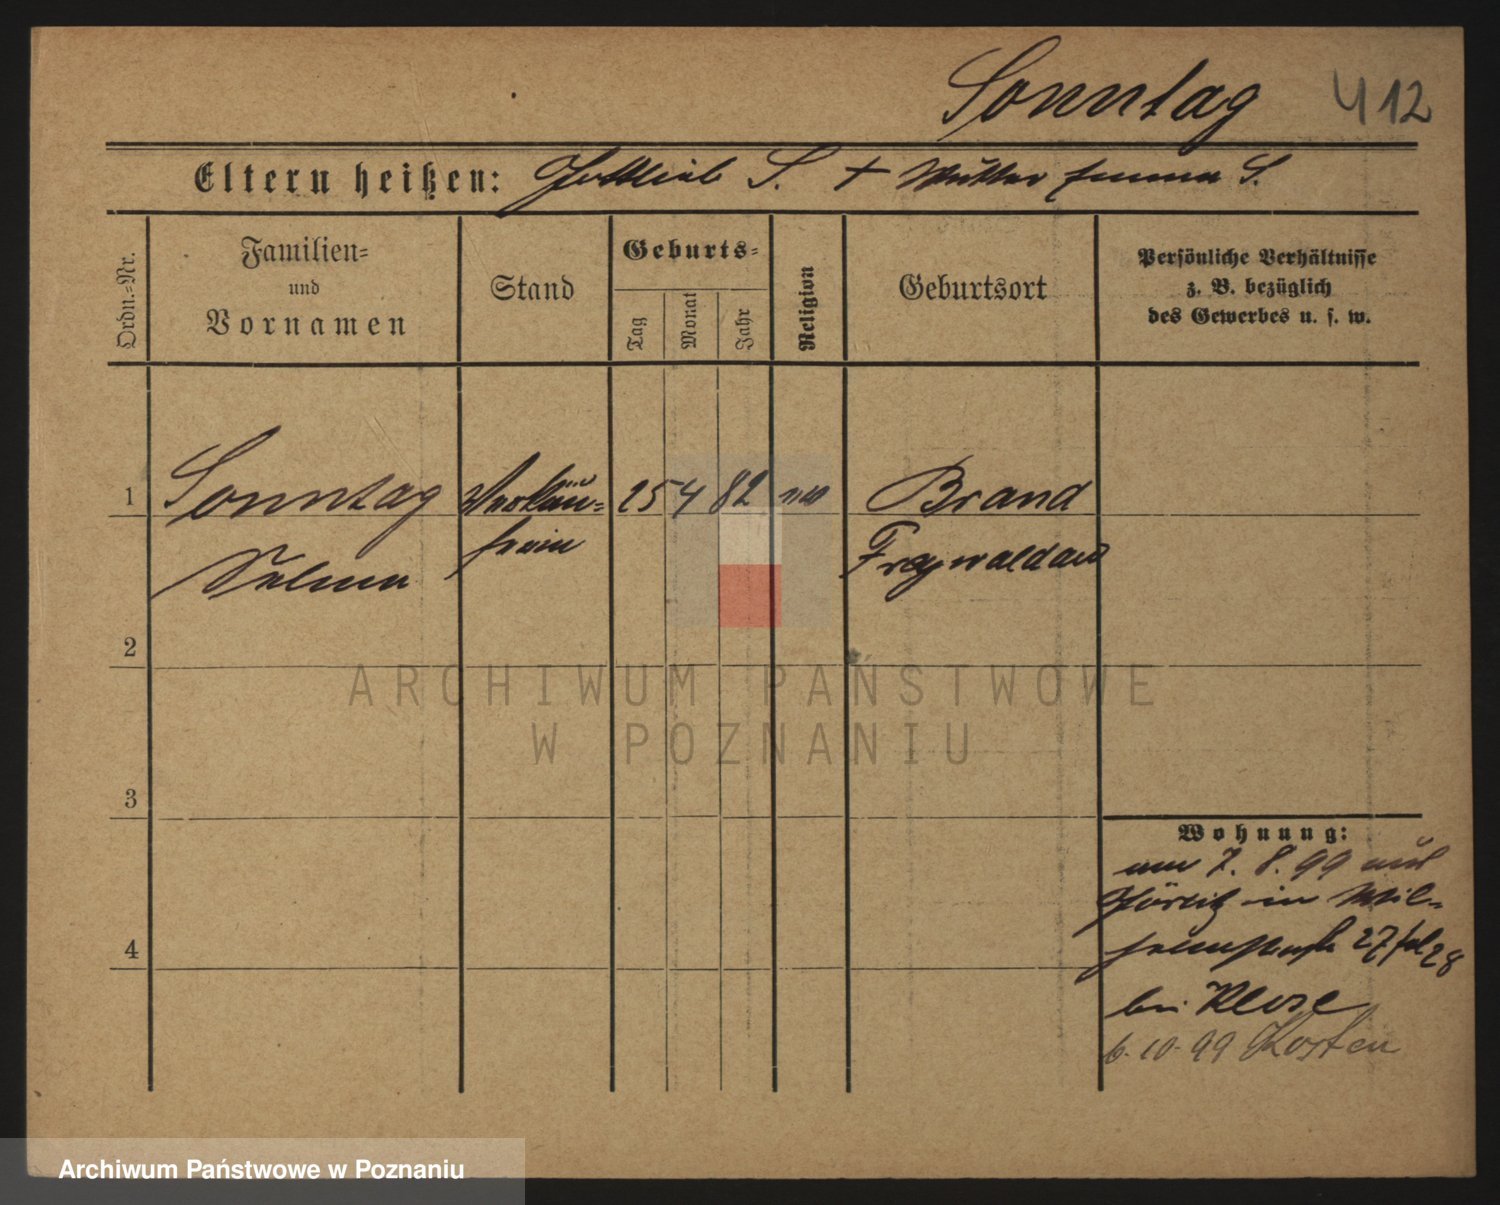 Sonntag 412
Eltern heißen: Gottlieb S. † Mutter Emma S.
Ordn.=Nr.
Familien=
und
Vornamen
Stand
Geburts=
Tag
Monat
Jahr
Religion
Geburtsort
Persönliche Verhältnisse
z. B. bezüglich
des Gewerbes u. s. w.
1 Sonntag Verkäu= 25 4 82 Brand
Selma ferin Freywaldau
2
ARCHIWUM PAŃSTWOWE
W POZNANIU
3
Wohnung:
7. 8. 99 aus
Görlitz in Wil=
27
4
bei Klose
6.10.99 Kosten
Archiwum Państwowe w Poznaniu